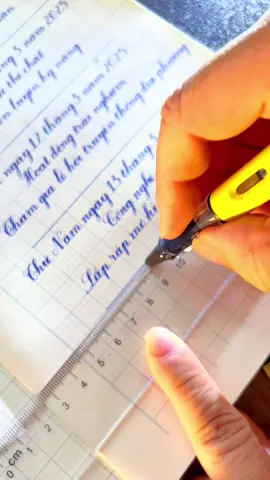 năm 2025
thể chất
luyện kỹ năng
ngày 12 tháng 3 năm 2025
Hoạt động trải nghiệm
Tham gia lễ hội truyền thống địa phương
Thứ Năm ngày 13 tháng 3
Công nghệ
Lắp ráp mô hì
cm 0 1 2 3 4 5 6 7 8 9 10